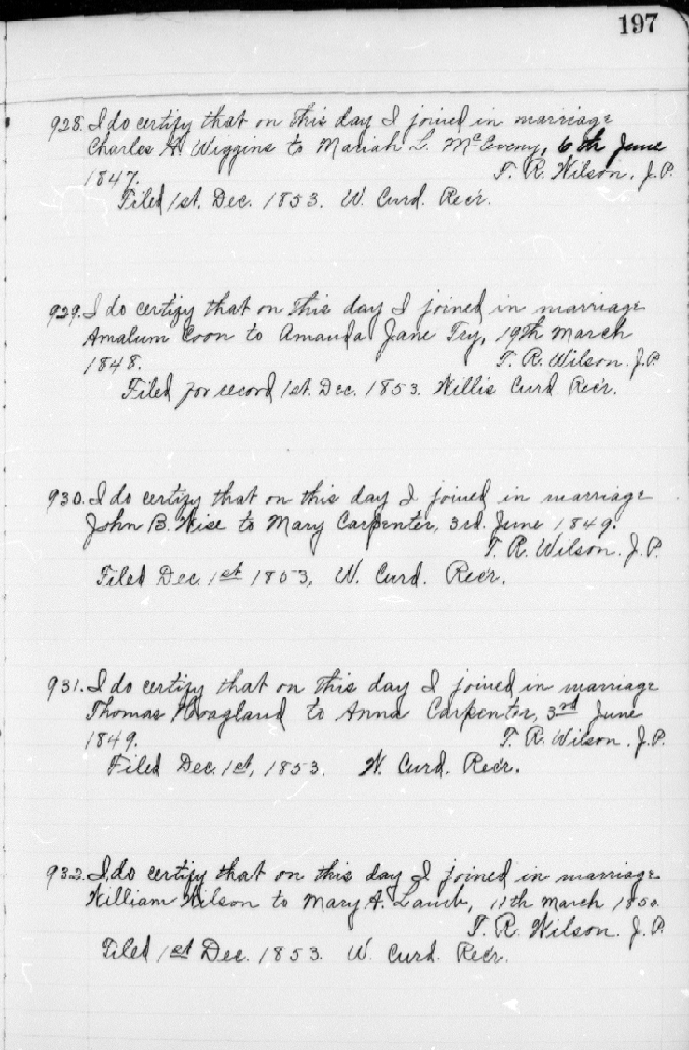 197
928. I do certify that on this day I joined in marriage
Charles H. Wiggins to Mariah L. McEveny, 6th June
1847. T. R. Wilson. J.P.
Filed 1st. Dec. 1853. W. Curd. Rec'r.
929. I do certify that on this day I joined in marriage
Amalum Coon to Amanda Jane Try, 19th March
1848. T. R. Wilson. J.P.
Filed for record 1st. Dec. 1853. Willis Curd Rec'r.
930. I do certify that on this day I joined in marriage
John B. Wise to Mary Carpenter, 3rd. June 1849.
T. R. Wilson. J.P.
Filed Dec. 1st 1853, W. Curd. Rec'r.
931. I do certify that on this day I joined in marriage
Thomas Hoagland to Anna Carpenter, 3rd June
1849. T. R. Wilson. J.P.
Filed Dec. 1st, 1853. W. Curd. Rec'r.
932. I do certify that on this day I joined in marriage
William Wilson to Mary A. Lamb, 11th March 1850
T. R. Wilson. J.P.
Filed 1st Dec. 1853. W. Curd. Rec'r.